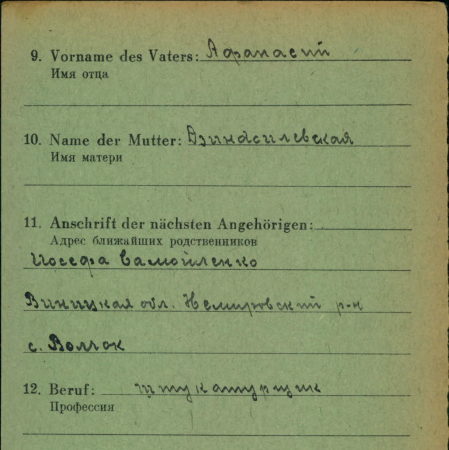 9. Vorname des Vaters: Афанасий
Имя отца
10. Name der Mutter: Дзинасилевская
Имя матери
11. Anschrift der nächsten Angehörigen:
Адрес ближайших родственников
Иосефа Самойленко
Виницкая обл. Немировский р-н
с. Волчок
12. Beruf: штукатурщик
Профессия